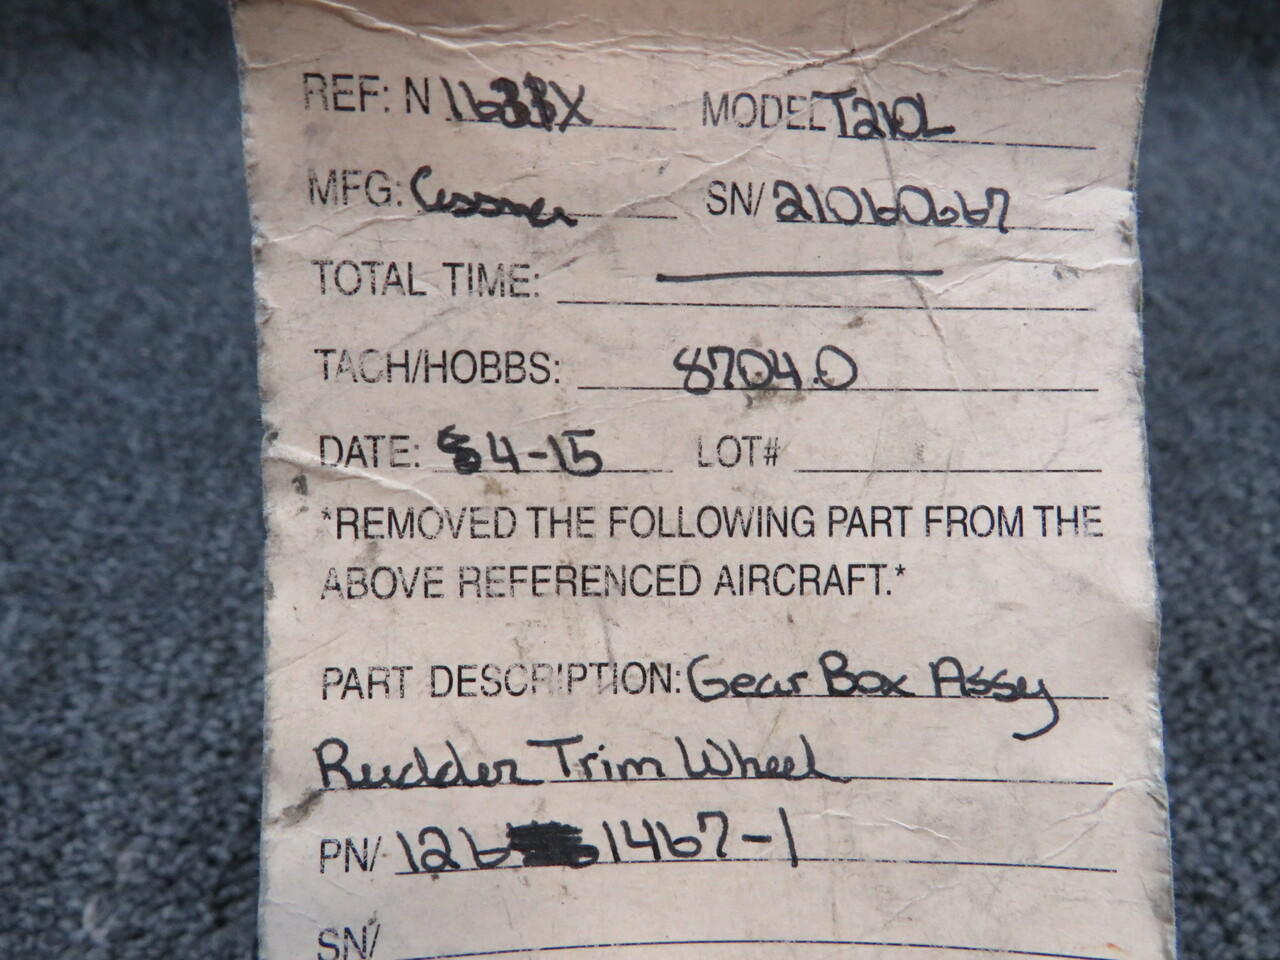 REF: N 1633X MODEL T210L
MFG: Cessna SN/ 21060667
TOTAL TIME: —
TACH/HOBBS: 8704.0
DATE: 4-15 LOT#
*REMOVED THE FOLLOWING PART FROM THE
ABOVE REFERENCED AIRCRAFT.*
PART DESCRIPTION: Gear Box Assy
Rudder Trim Wheel
PN/ 126 1467-1
SN/